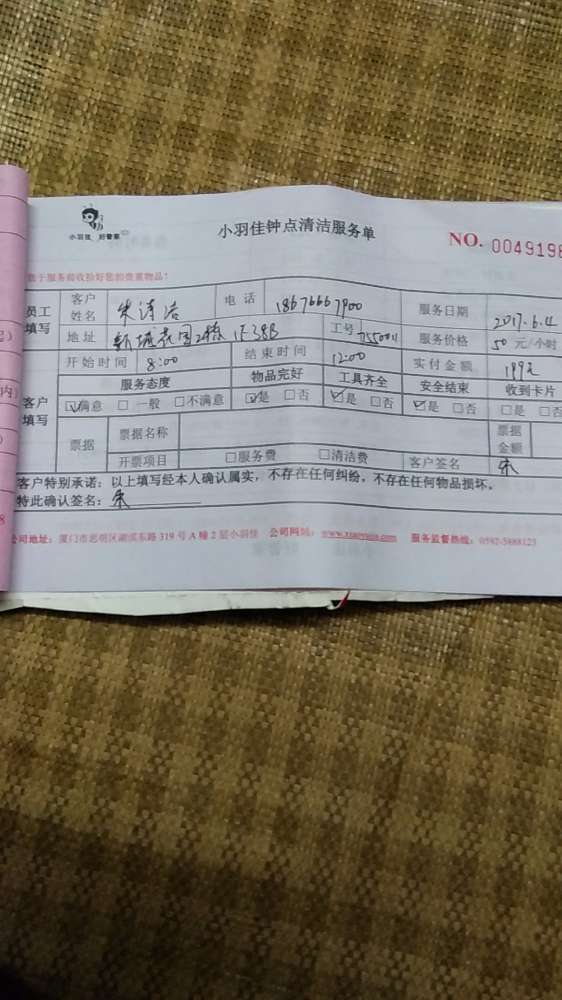 小羽佳 好管家
小羽佳钟点清洁服务单
NO. 0049198
于服务前收拾好您的贵重物品！
员工填写
客户姓名 朱 洁 电话 18676667900 服务日期 2017.6.4
地址 新城花园2栋 1F38B 工号 755001 服务价格 50 元/小时
开始时间 8:00 结束时间 12:00 实付金额 199元
客户填写
服务态度 物品完好 工具齐全 安全结束 收到卡片
☑满意 □一般 □不满意 ☑是 □否 ☑是 □否 ☑是 □否 □是 □否
票据 票据名称 票据金额
开票项目 □服务费 □清洁费 客户签名 朱
客户特别承诺：以上填写经本人确认属实，不存在任何纠纷，不存在任何物品损坏。
特此确认签名：朱
公司地址：厦门市思明区湖滨东路 319 号 A 幢 2 层小羽佳 公司网址： 服务监督热线：0592-5888123
起）
内
）
8